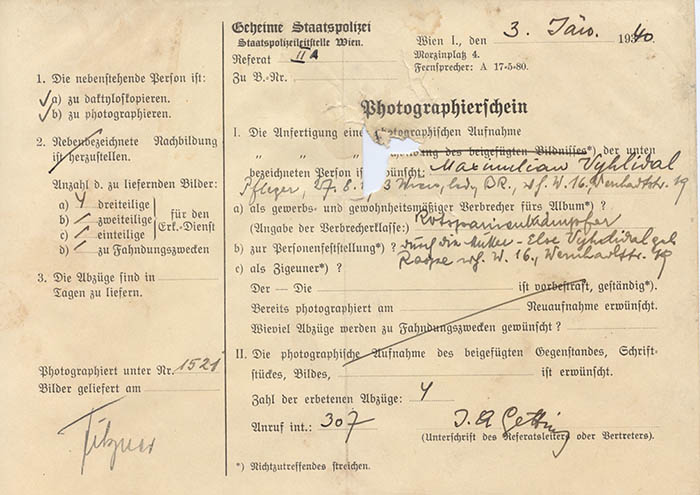 Geheime Staatspolizei
Staatspolizeileitstelle Wien.
Referat II A
Zu B.-Nr.
Wien I., den 3. Jän. 1940
Morzinplatz 4.
Fernsprecher: A 17-5-80.
1. Die nebenstehende Person ist:
a) zu daktyloskopieren.
b) zu photographieren.
2. Nebenbezeichnete Nachbildung
ist herzustellen.
Anzahl d. zu liefernden Bilder:
a) 4 dreiteilige
b) zweiteilige
c) einteilige
für den
Erk.-Dienst
d) zu Fahndungszwecken
3. Die Abzüge sind in
Tagen zu liefern.
Photographiert unter Nr. 1521
Bilder geliefert am
Photographierschein
I. Die Anfertigung eine photographischen Aufnahme
" " " des beigefügten Bildnisses*) der unten
bezeichneten Person ist wünscht: Maximilian Vyhlidal
Pfleger, 27. 8. 3 Wien, led., DR., wh. W. 16. Wenhartstr. 19
a) als gewerbs- und gewohnheitsmäßiger Verbrecher fürs Album*) ?
(Angabe der Verbrecherklasse:) Rotspanienkämpfer
b) zur Personenfeststellung*) ? durch die Mutter - Else Vyhlidal geb.
c) als Zigeuner*) ? wh. W. 16., Wenhartstr. 19
Der — Die ist vorbestraft, geständig*).
Bereits photographiert am Neuaufnahme erwünscht.
Wieviel Abzüge werden zu Fahndungszwecken gewünscht ?
II. Die photographische Aufnahme des beigefügten Gegenstandes, Schrift-
stückes, Bildes, ist erwünscht.
Zahl der erbetenen Abzüge: 4
Anruf int.: 307
I. A.
(Unterschrift des Referatsleiters oder Vertreters).
*) Nichtzutreffendes streichen.